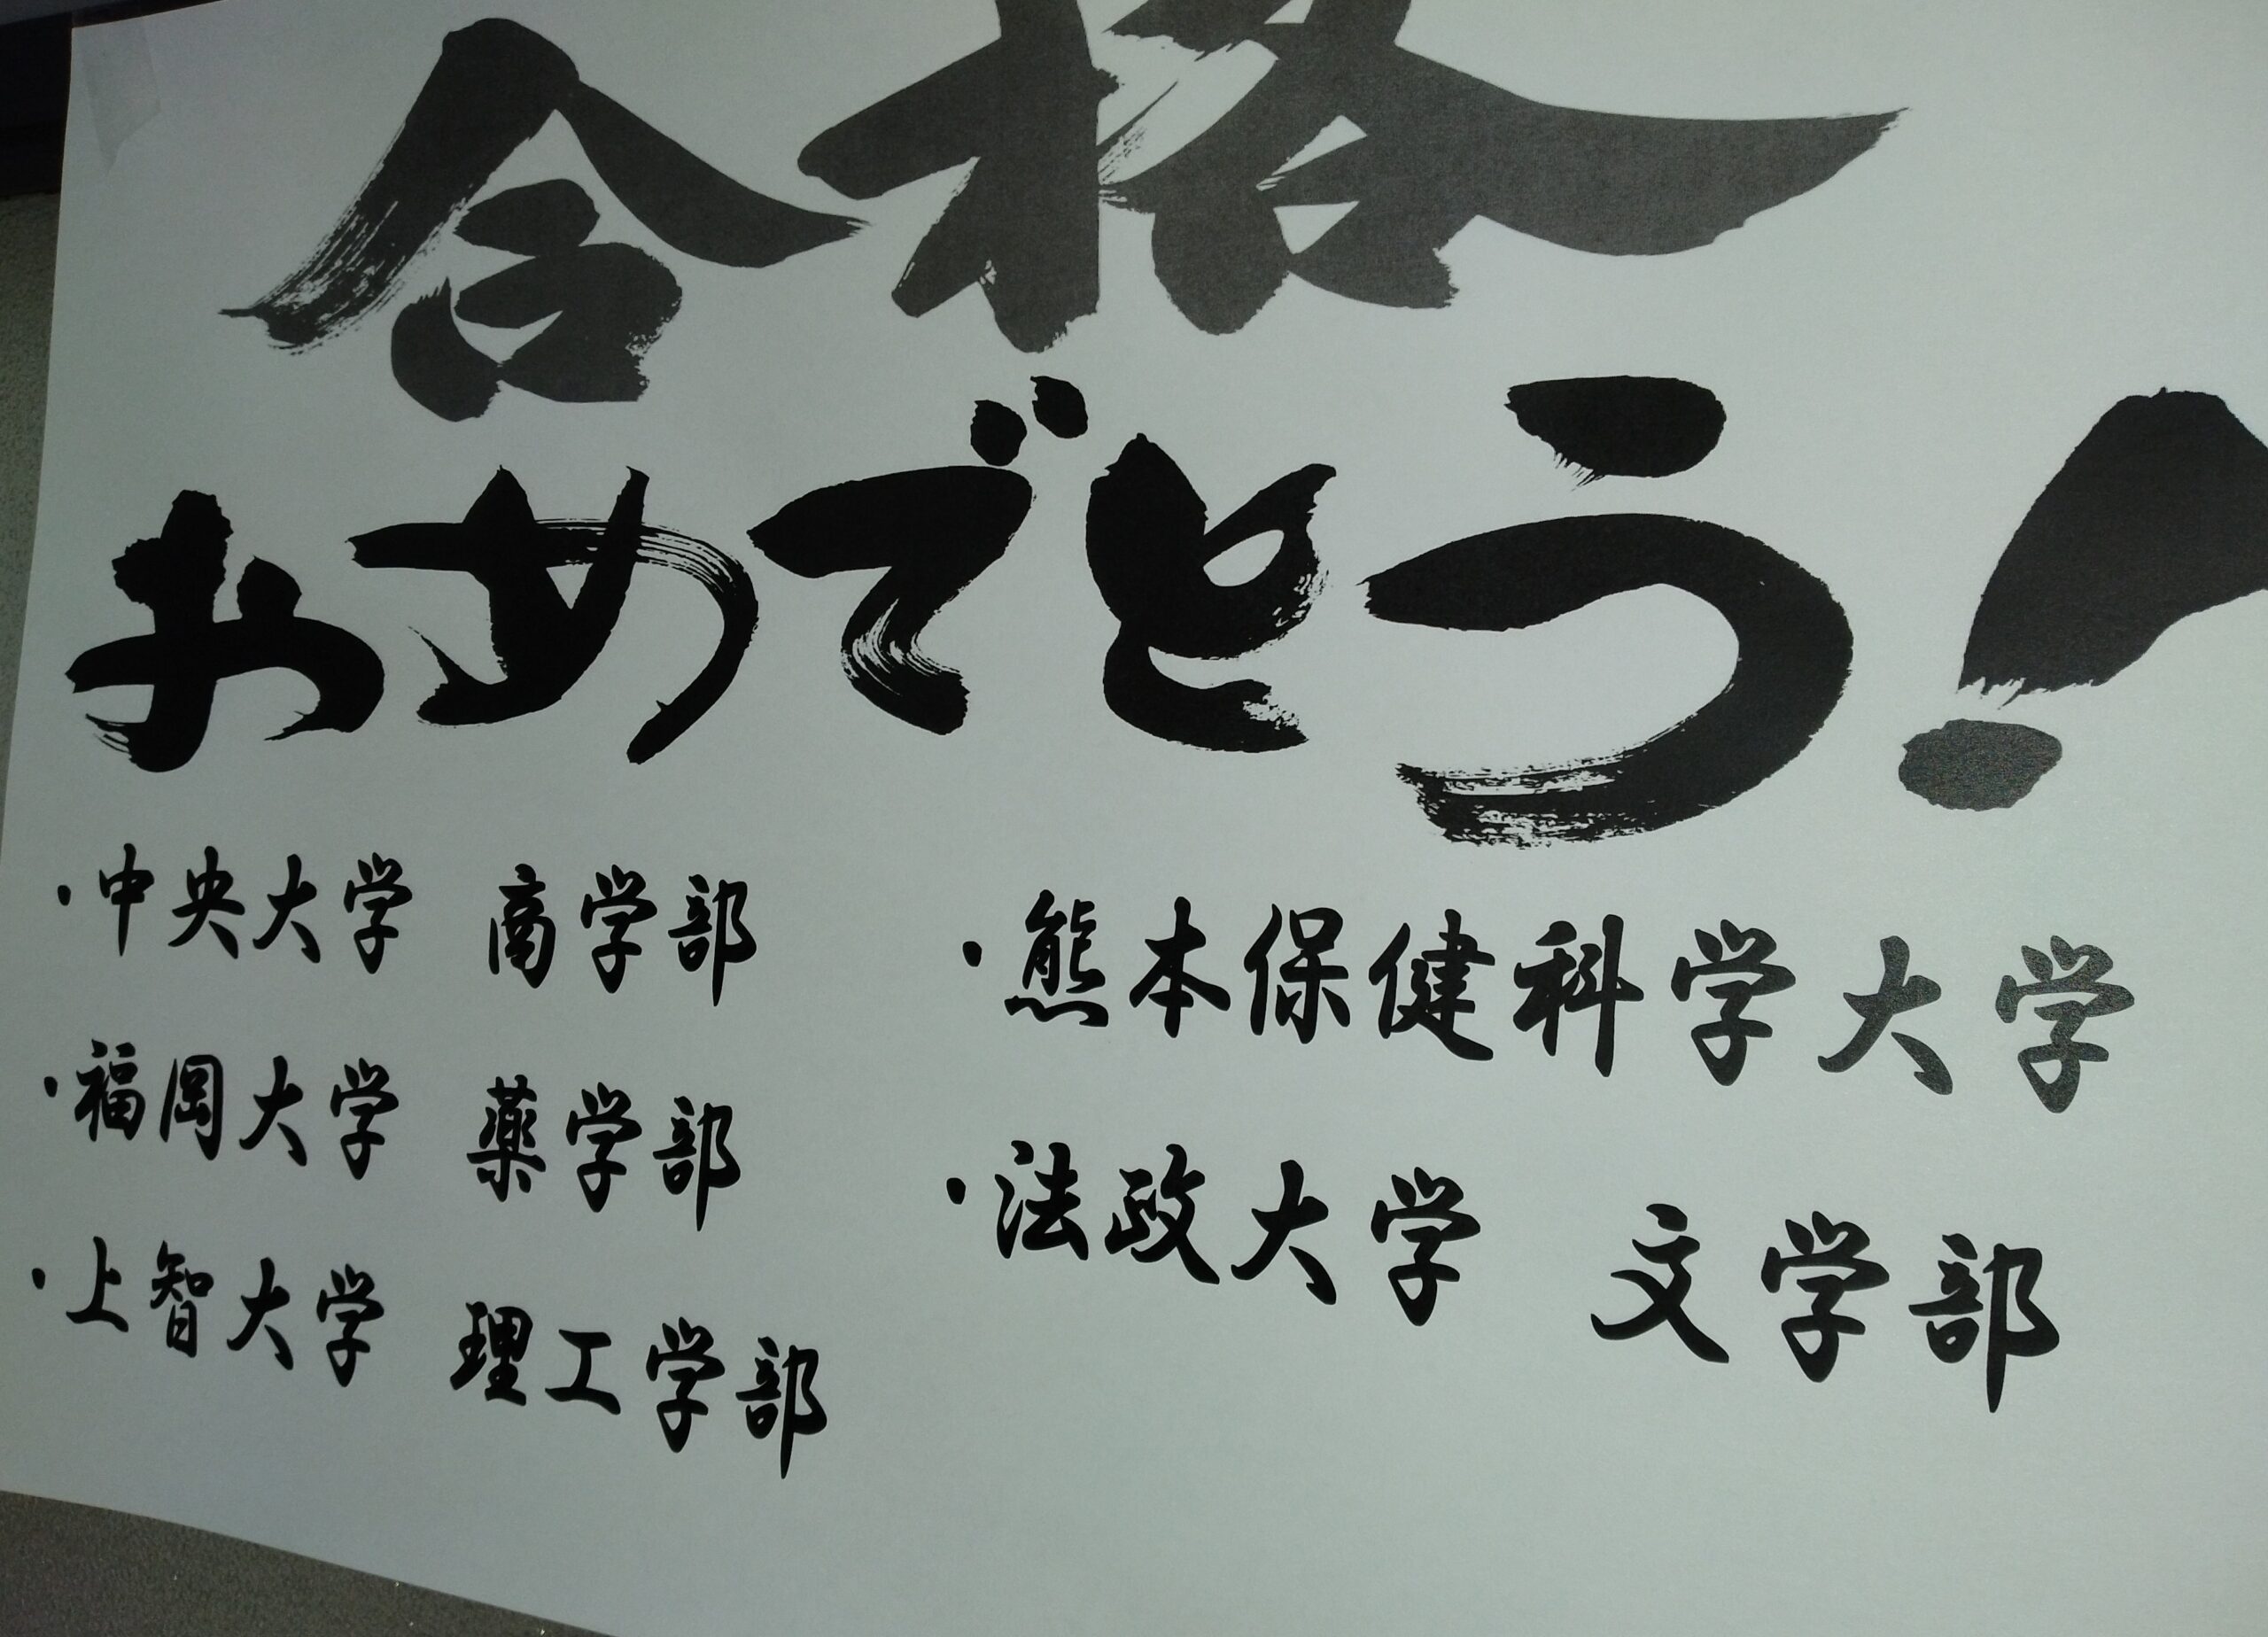 合格
おめでとう!
・中央大学 商学部
・福岡大学 薬学部
・上智大学 理工学部
・熊本保健科学大学
・法政大学 文学部